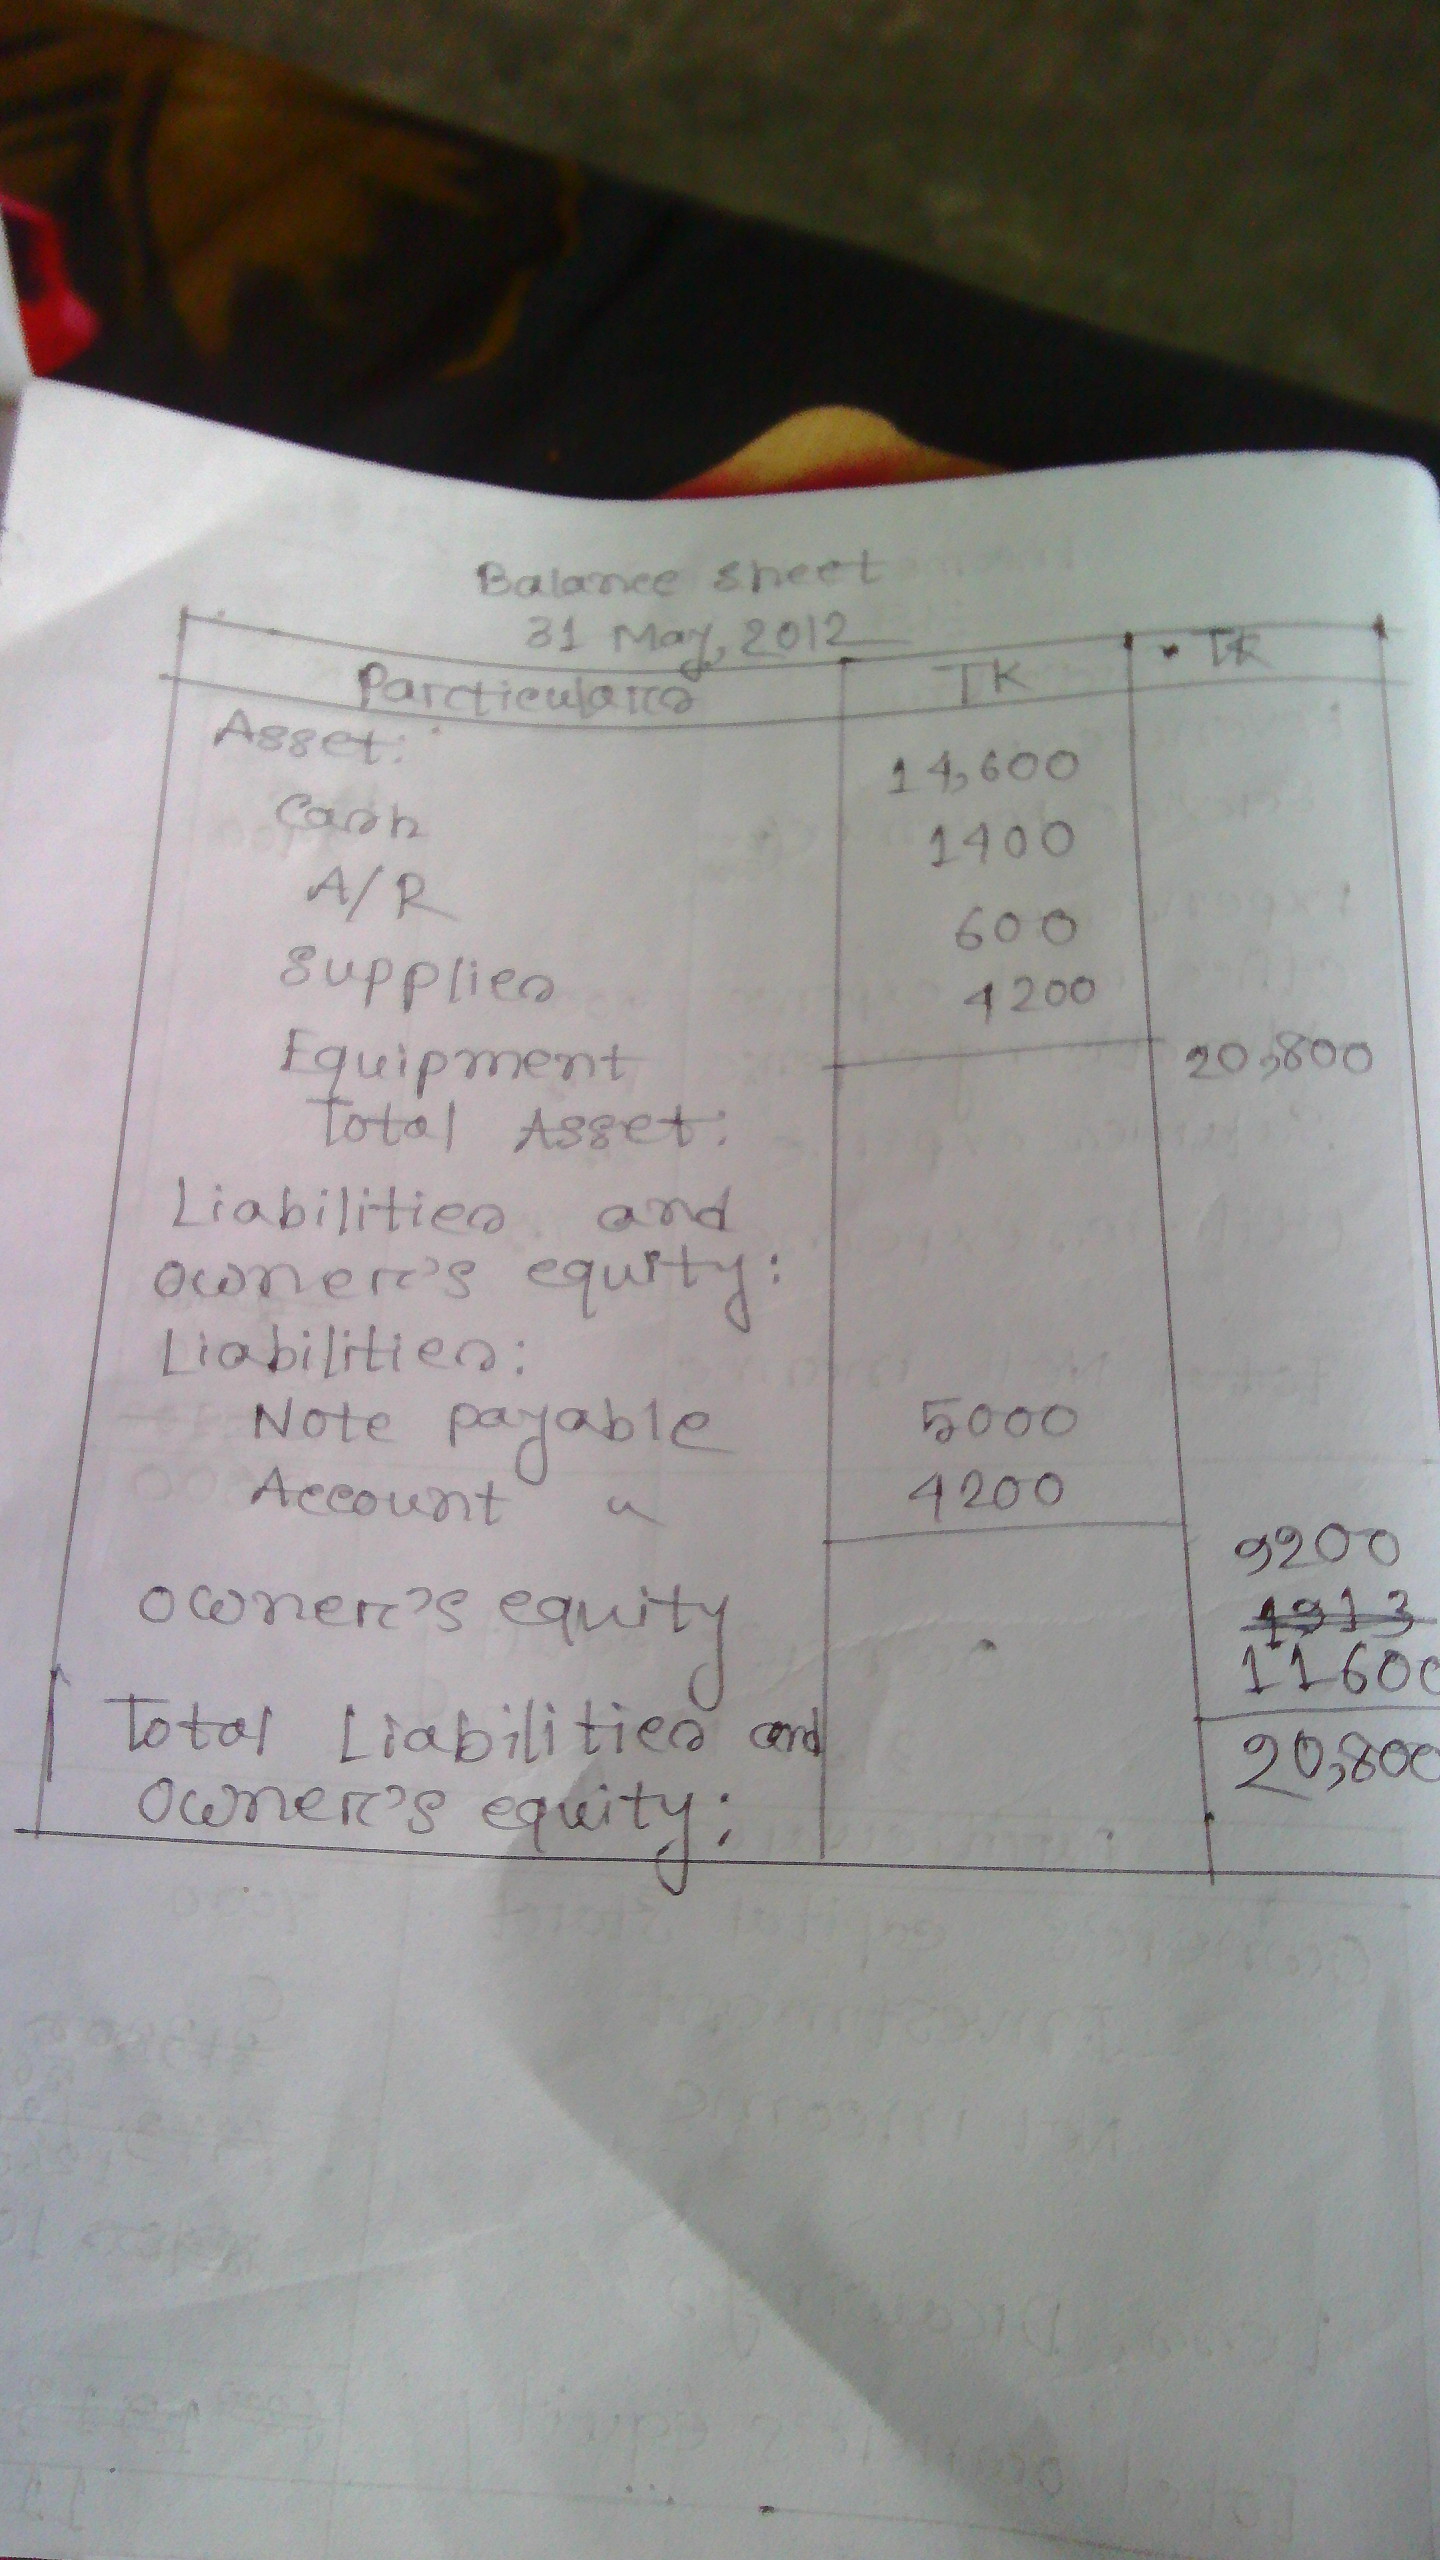 Balance sheet
31 May, 2012
Particulars TK TK
Asset:
Cash 14,600
A/R 1400
Supplies 600
Equipment 4200
Total Asset: 20,800
Liabilities and
owner's equity:
Liabilities:
Note payable 5000
Account " 4200
9200
owner's equity 1913
11600
Total Liabilities and 20,800
owner's equity: